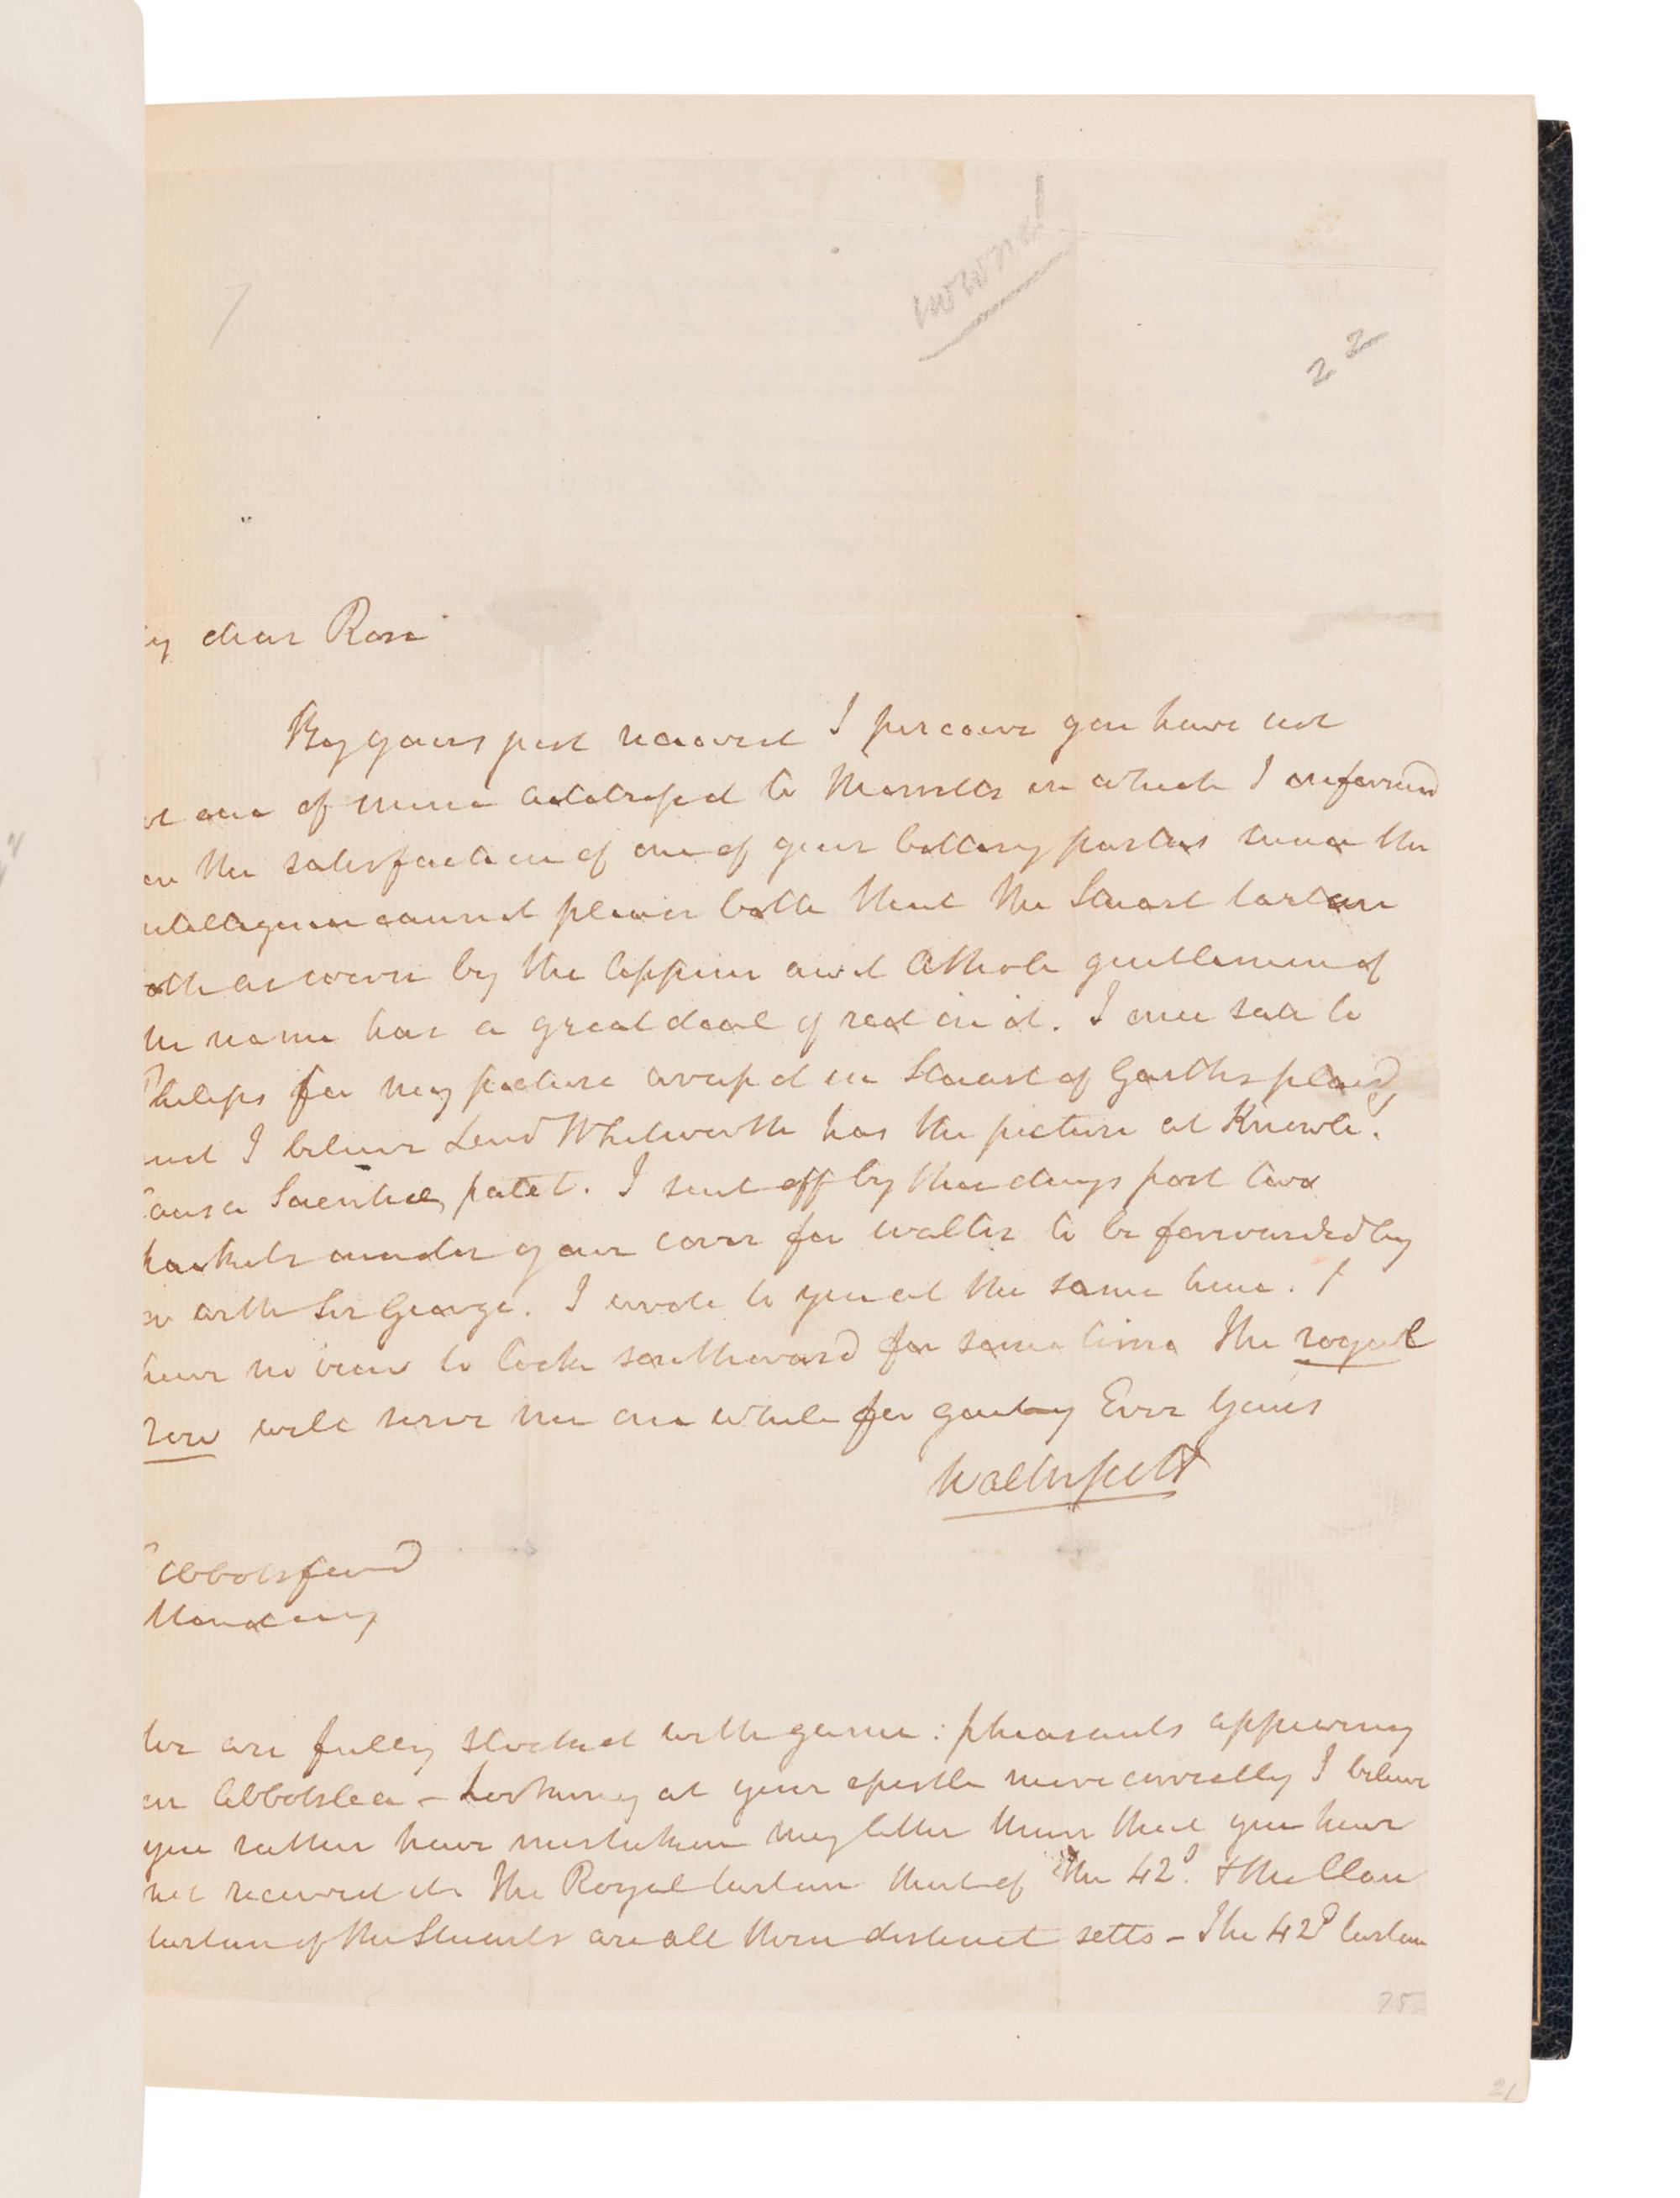 22
y dear Rose
By yours just received I perceive you have not
one of mine addressed to Morritts in which I informd
the satisfaction of one of your betting parties since the
cannot please both that the Stuart tartan
as worn by the Appin and Athole gentlemen of
name has a great deal of red in it. I once sate to
Philips for my picture wrapd in Stuart of Garths plaid
I believe Lord Whitworth has the picture at Knowle.
ausa Scientiae patet. I sent off by this days post two
packets under your cover for Walter to be forwarded by
or with Sir George. I wrote to you at the same time. I
have no view to look southward for some time The royal
row will serve me one while for gaiety Ever yours
Walter Scott
Abbotsford
Monday
We are fully stocked with game: pheasants appearing
on Abbotslea - Looking at your epistle more correctly I believe
you rather have mistaken my letter than that you have
not received it. The Royal tartan that of the 42d. & the Clan
tartan of the Stuarts are all three distinct setts - The 42d tartan
21